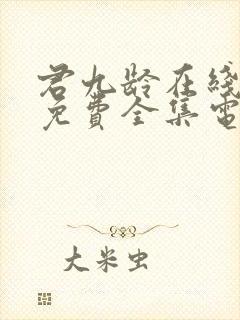 君九龄在线
免费全集電
大米虫